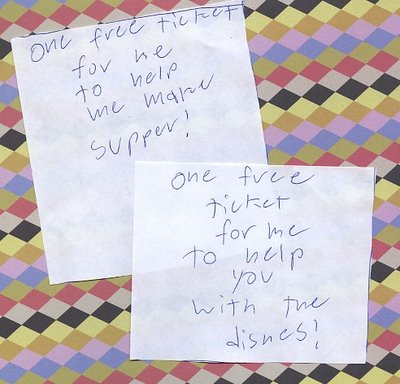 One free ticket
for me
to help
me make
supper!
One free
ticket
for me
to help
you
with the
dishes!